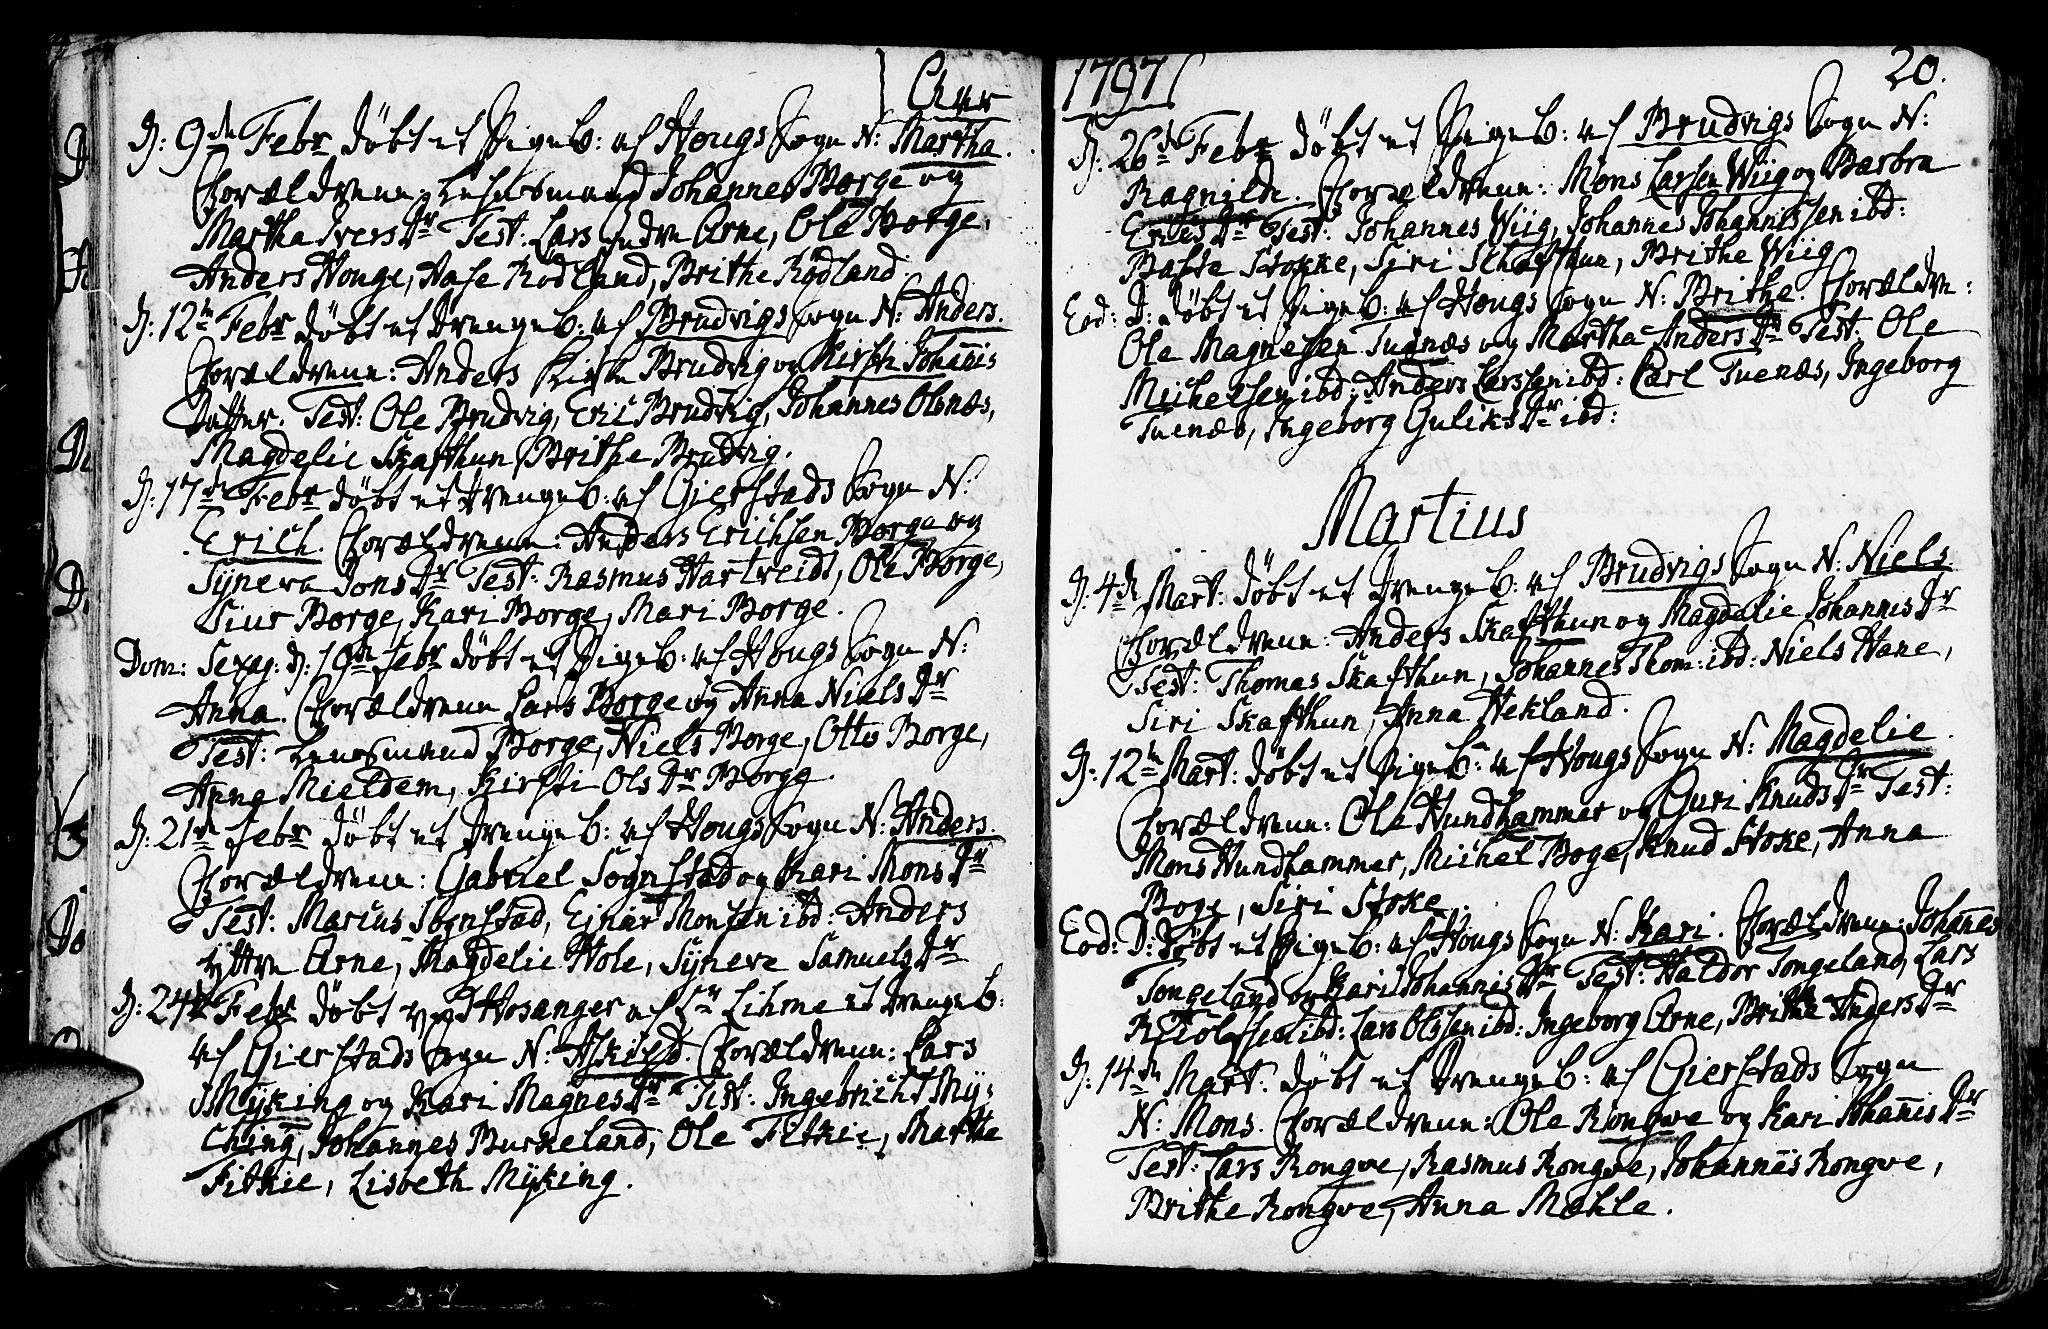 Aar
D: 9de Febr døbt et Pigeb: af Hougs Sogn N: Martha.
Forældrene: Lehnsmand Johannes Borge og
Martha IversDr Test: Lars Indre Arne, Ole Borge,
Anders Houge, Aase Rødland, Brithe Rødland.
D: 12te Febr døbt et Drengeb: af Brudvigs Sogn N: Anders.
Forældrene: Anders Brudvig og Kirsti Johannis
Datter. Test: Ole Brudvig, Eric Brudvig, Johannes Olsnæs,
Magdelie Skafthun, Brithe Brudvig.
D: 17de Febr døbt et Drengeb: af Gierstads Sogn N:
Erich. Forældrene: Anders Erichsen Borge og
Syneva JonsDr Test: Rasmus Hartveidt, Ole Borge,
Siur Borge, Kari Borge, Mari Borge.
Dom: Sexag: D: 19de Febr døbt et Pigeb: af Hougs Sogn N:
Anna. Forældrene Lars Borge og Anna NielsDr
Test: Lensmand Borge, Niels Borge, Otto Borge,
Anna Mieldem, Kirsti OlsDr Borge.
D: 21de Febr døbt et Drengeb: af Hougs Sogn N: Anders.
Forældrene: Gabriel Sognstad og Kari MonsDr
Test: Marcus Sognstad, Ejnar Monsen ibd: Anders
yttre Arne, Magdelie Hole, Syneve SamuelsDr
D: 24de Febr døbt paa Hosanger af Hr Lihme et Drengeb:
af Gierstads Sogn N: Askild. Forældrene: Lars
Myking og Kari MagnesDr Test: Ingebricht My-
ching, Johannes Burkeland, Ole Fitkie, Martha
Fitkie, Lisbeth Myking.
1797
20.
D: 26de Febr døbt et Pigeb: af Brudvigs Sogn N:
Ragnilde. Forældrene: Mons Larsen Wiig og Barbra
EricsDr Test: Johannes Wiig, Johannes Johannissen ibd:
Baste Stokke, Siri Schafthun, Brithe Wiig
Eod: D: døbt et Pigeb: af Hougs Sogn N: Brithe. Forældre:
Ole Magnesen Tuenæs og Martha AndersDr Test: Ole
Michelsen ibd: Anders Larssen ibd: Carl Tuenæs, Ingeborg
Tuenæs, Ingeborg GuliksDr ibd:
Martius
D: 4de Mart: døbt et Drengeb: af Brudvigs Sogn N: Niels
Forældrene: Anders Skafthun og Magdelie JohannisDr
Test: Thomas Skafthun, Johannes Thom: ibd: Niels Hane,
Siri Skafthun, Anna Hekland.
D: 12te Mart: døbt et Pigeb: af Hougs Sogn N: Magdelie.
Forældrene: Ole Hundhammer og Guri KnudsDr Test:
Mons Hundhammer, Michel Boge, Knud Stoke, Anna
Boge, Siri Stoke.
Eod: D: døbt et Pigeb: af Hougs Sogn N: Kari. Forældrene: Johannes
Tongeland og Kari JohannisDr Test: Haldor Tongeland, Lars
ibd: Lars Olssen ibd: Ingeborg Arne, Brithe AndersDr
D: 14de Mart: døbt et Drengeb: af Gierstads Sogn
N: Mons. Forældrene: Ole Rongve og Kari JohannisDr
Test: Lars Rongve, Rasmus Rongve, Johannes Rongve,
Brithe Rongve, Anna Mæhle.